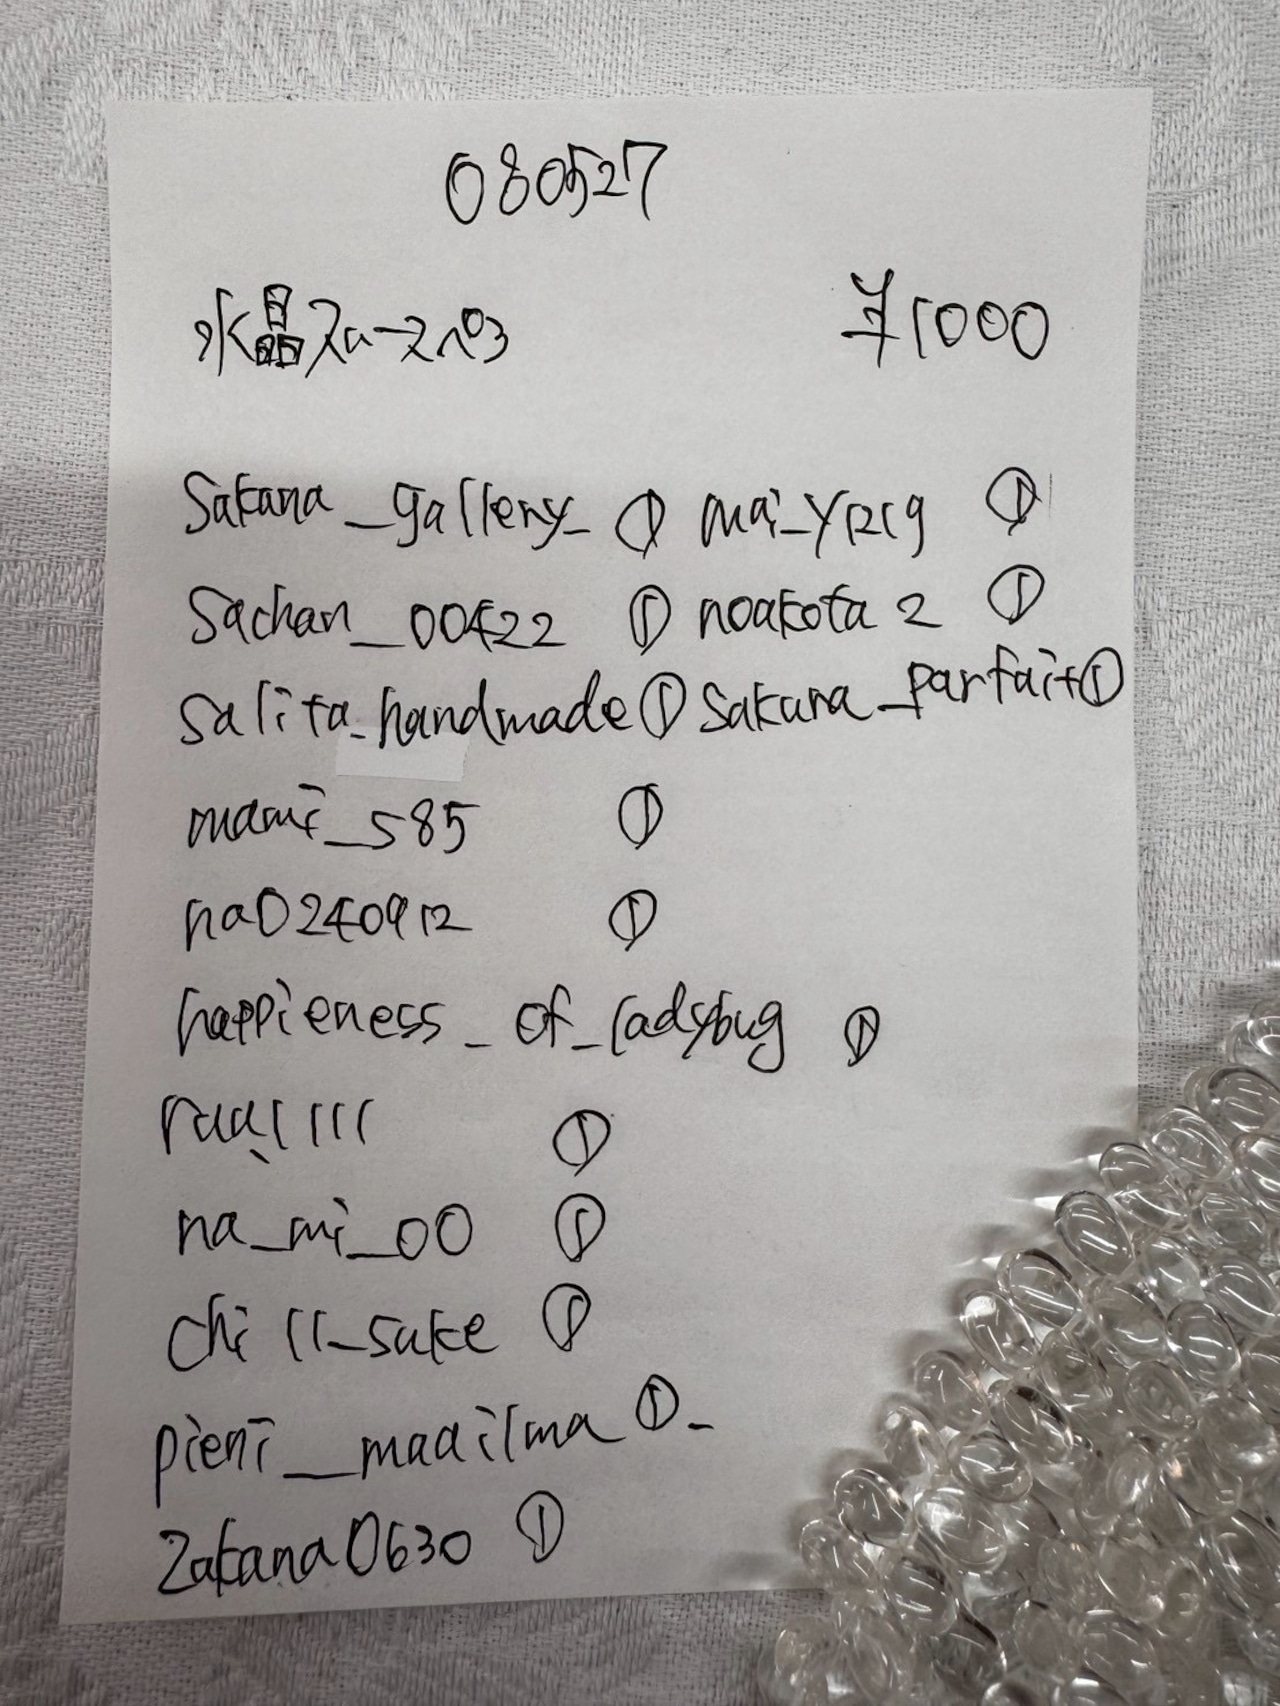 080527
水晶スルースパ03 ¥1000
Sakana_gallery_ ① mai_y1219 ①
Sachan_00422 ① noakota2 ①
salita_handmade ① Sakura_parfait ①
mami_s85 ①
na0240912 ①
happieness_of_ladybug ①
①
na_mi_00 ①
chill_sake ①
pieni__maailma ①_
Zakana0630 ①